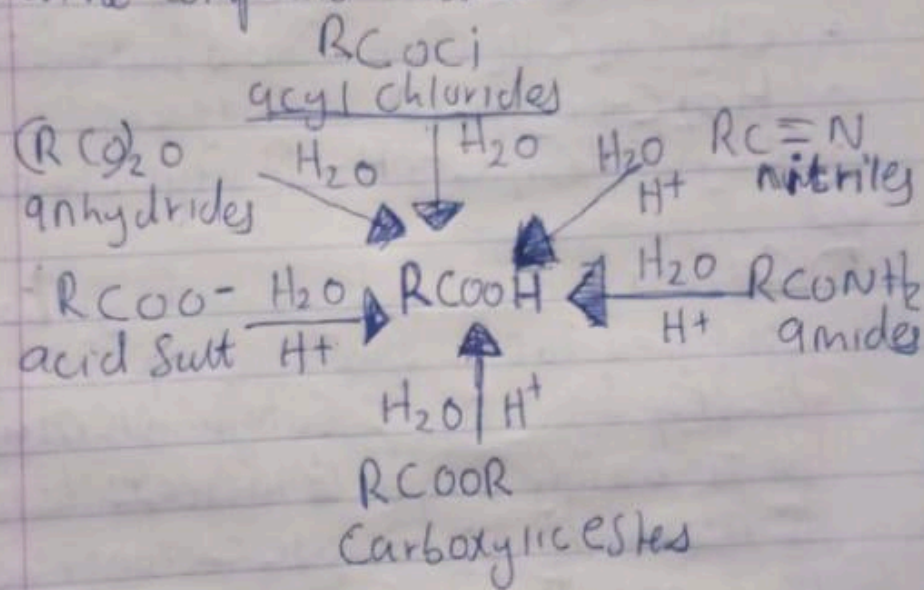 RCOCl
acyl chlorides
(RCO)2O
anhydrides
H2O
H2O
H2O
H+
RC≡N
nitriles
RCOO-
acid Salt
H2O
H+
RCOOH
H2O
H+
RCONH2
amides
H2O
H+
RCOOR
Carboxylic estes